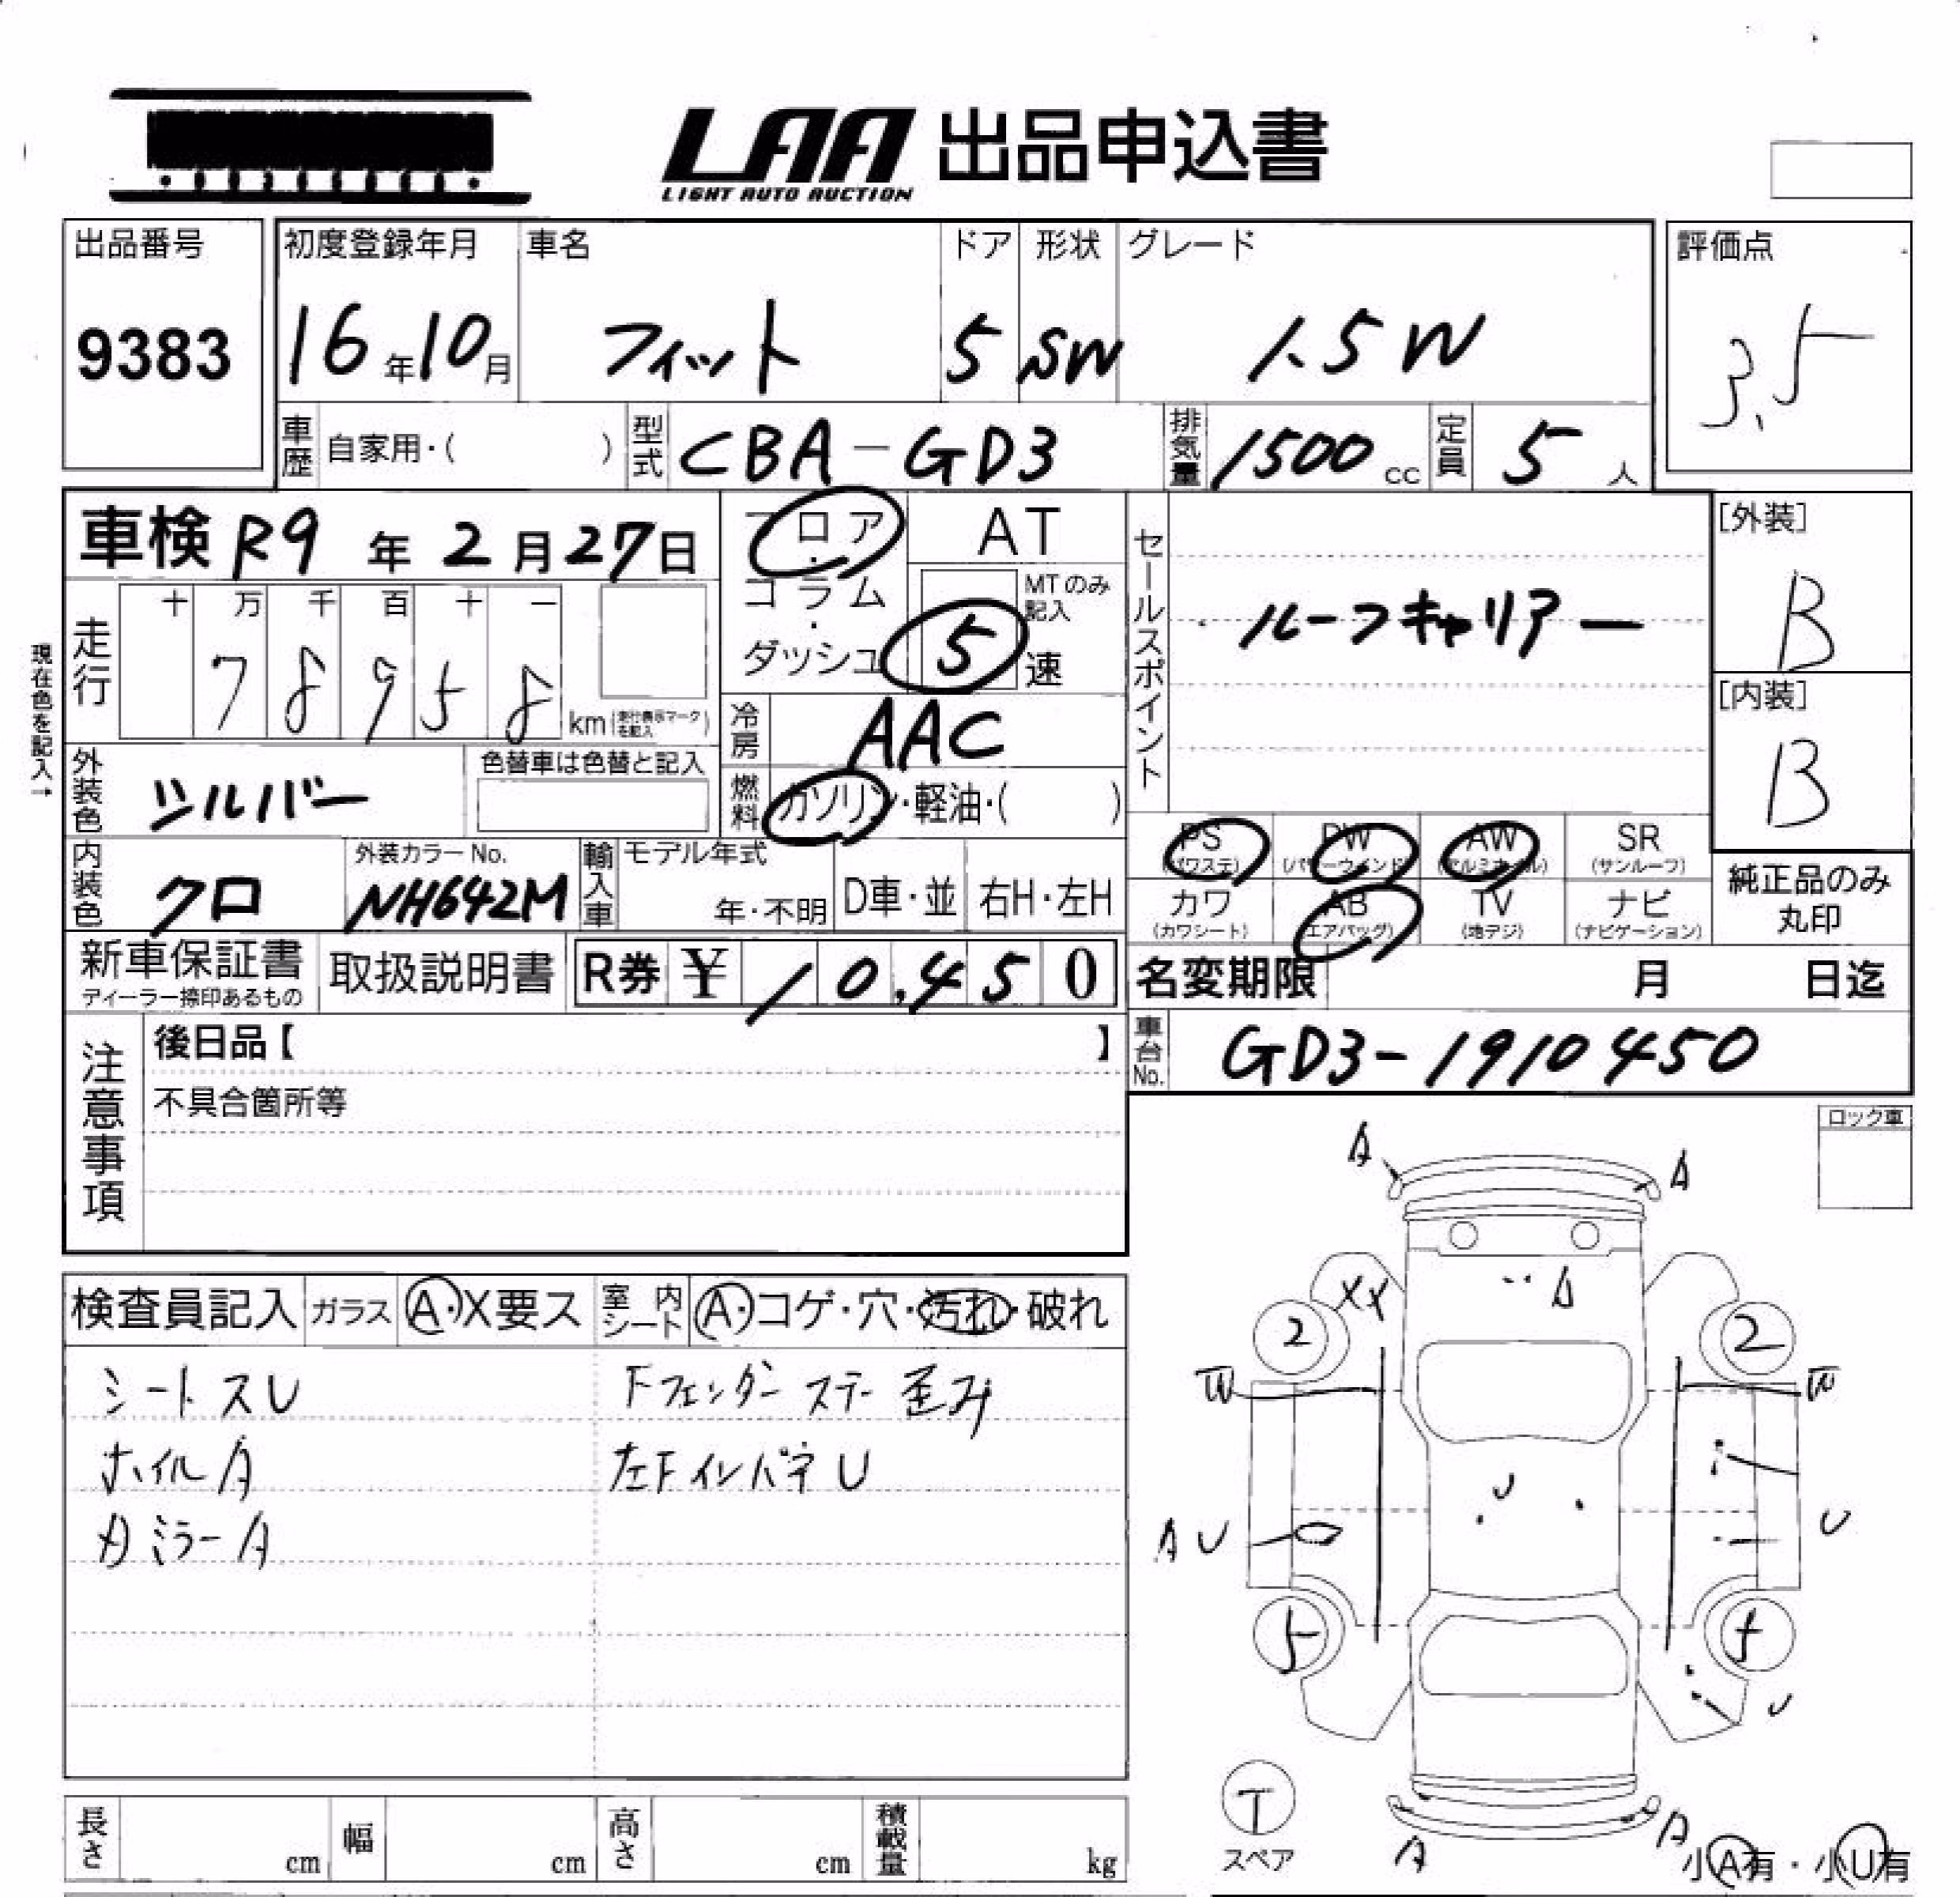 LAA 出品申込書
LIGHT AUTO AUCTION
出品番号
9383
初度登録年月
16年10月
車名
フィット
ドア
5
形状
SW
グレード
1.5W
評価点
3.5
車歴 自家用・( )
型式 CBA-GD3
排気量 1500 cc
定員 5人
車検 R9年2月27日
フロア・コラム・ダッシュ
AT
MTのみ記入
5速
セールスポイント
ルーフキャリアー
[外装]
B
[内装]
B
現在色を記入→
走行
十 万 千 百 十 一
7 8 9 5 8
km(走行表示マークを記入)
冷房 AAC
燃料 ガソリン・軽油・( )
外装色 シルバー
色替車は色替と記入
内装色 クロ
外装カラーNo.
NH642M
輸入車
モデル年式
年・不明
D車・並
右H・左H
PS (パワステ)
PW (パワーウインド)
AW (アルミホイル)
SR (サンルーフ)
カワ (カワシート)
AB (エアバッグ)
TV (地デジ)
ナビ (ナビゲーション)
純正品のみ丸印
新車保証書
ディーラー捺印あるもの
取扱説明書
R券 ¥ 10,450
名変期限 月 日迄
車台No. GD3-1910450
注意事項
後日品【 】
不具合箇所等
ロック車
検査員記入
ガラス A・X要ス
室内シート A・コゲ・穴・汚れ・破れ
シートスU
ホイルA
ミラーA
Fフェンダーステー歪み
左FインパネU
A
A
XX
A
2
2
W
W
U
AU
U
5
5
U
T
スペア
A
A
小A有・小U有
長さ cm
幅 cm
高さ cm
積載量 kg